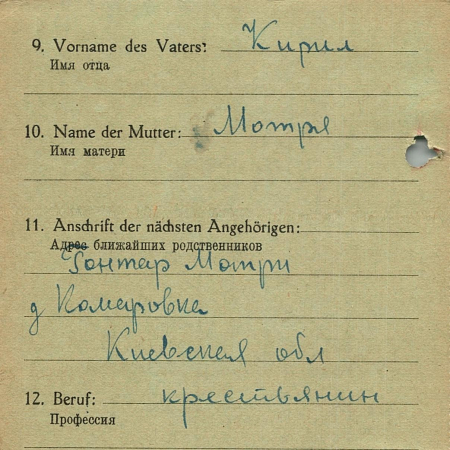 9. Vorname des Vaters: Кирил
Имя отца
10. Name der Mutter: Мотря
Имя матери
11. Anschrift der nächsten Angehörigen:
Адрес ближайших родственников
Гонтар Мотри
д Комаровка
Киевская обл
12. Beruf: крестьянин
Профессия